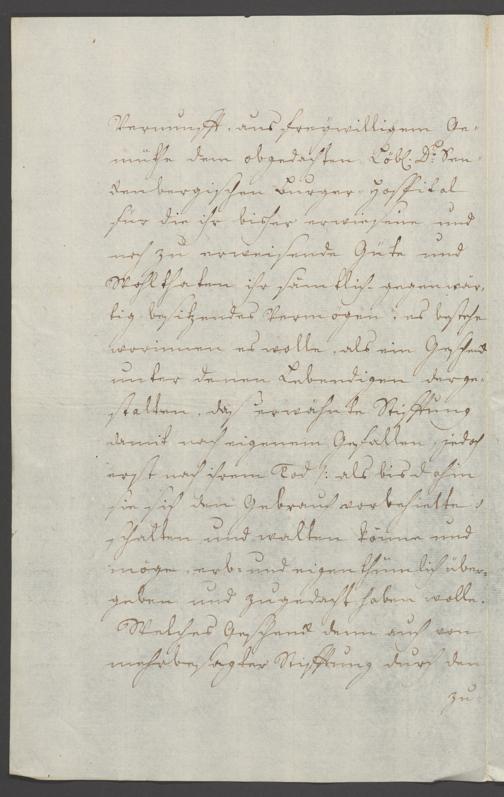 Vernunfft, aus freywilligem Ge-
müthe dem obgedachten Löbl. Dr. Sen-
ckenbergischen Burger-Hospital
für die ihr bisher erwiesene und
noch zu erweisende Güte und
Wohlthaten ihr sämtlich-gegenwär-
tig besitzendes Vermögen, es bestehe
worinnen es wolle, als ein Geschenck
unter denen Lebendigen derge-
stalten, daß erwähnte Stifftung
damit nach eigenem Gefallen, jedoch
erst nach ihrem Tod /: als bis dahin
sie sich den Gebrauch vorbehielte :/
schalten und walten könne und
möge, erb- und eigenthümlich über-
geben und zugedacht haben wolle.
Welches Geschenck denn auch von
mehrbesagter Stifftung durch den
zu